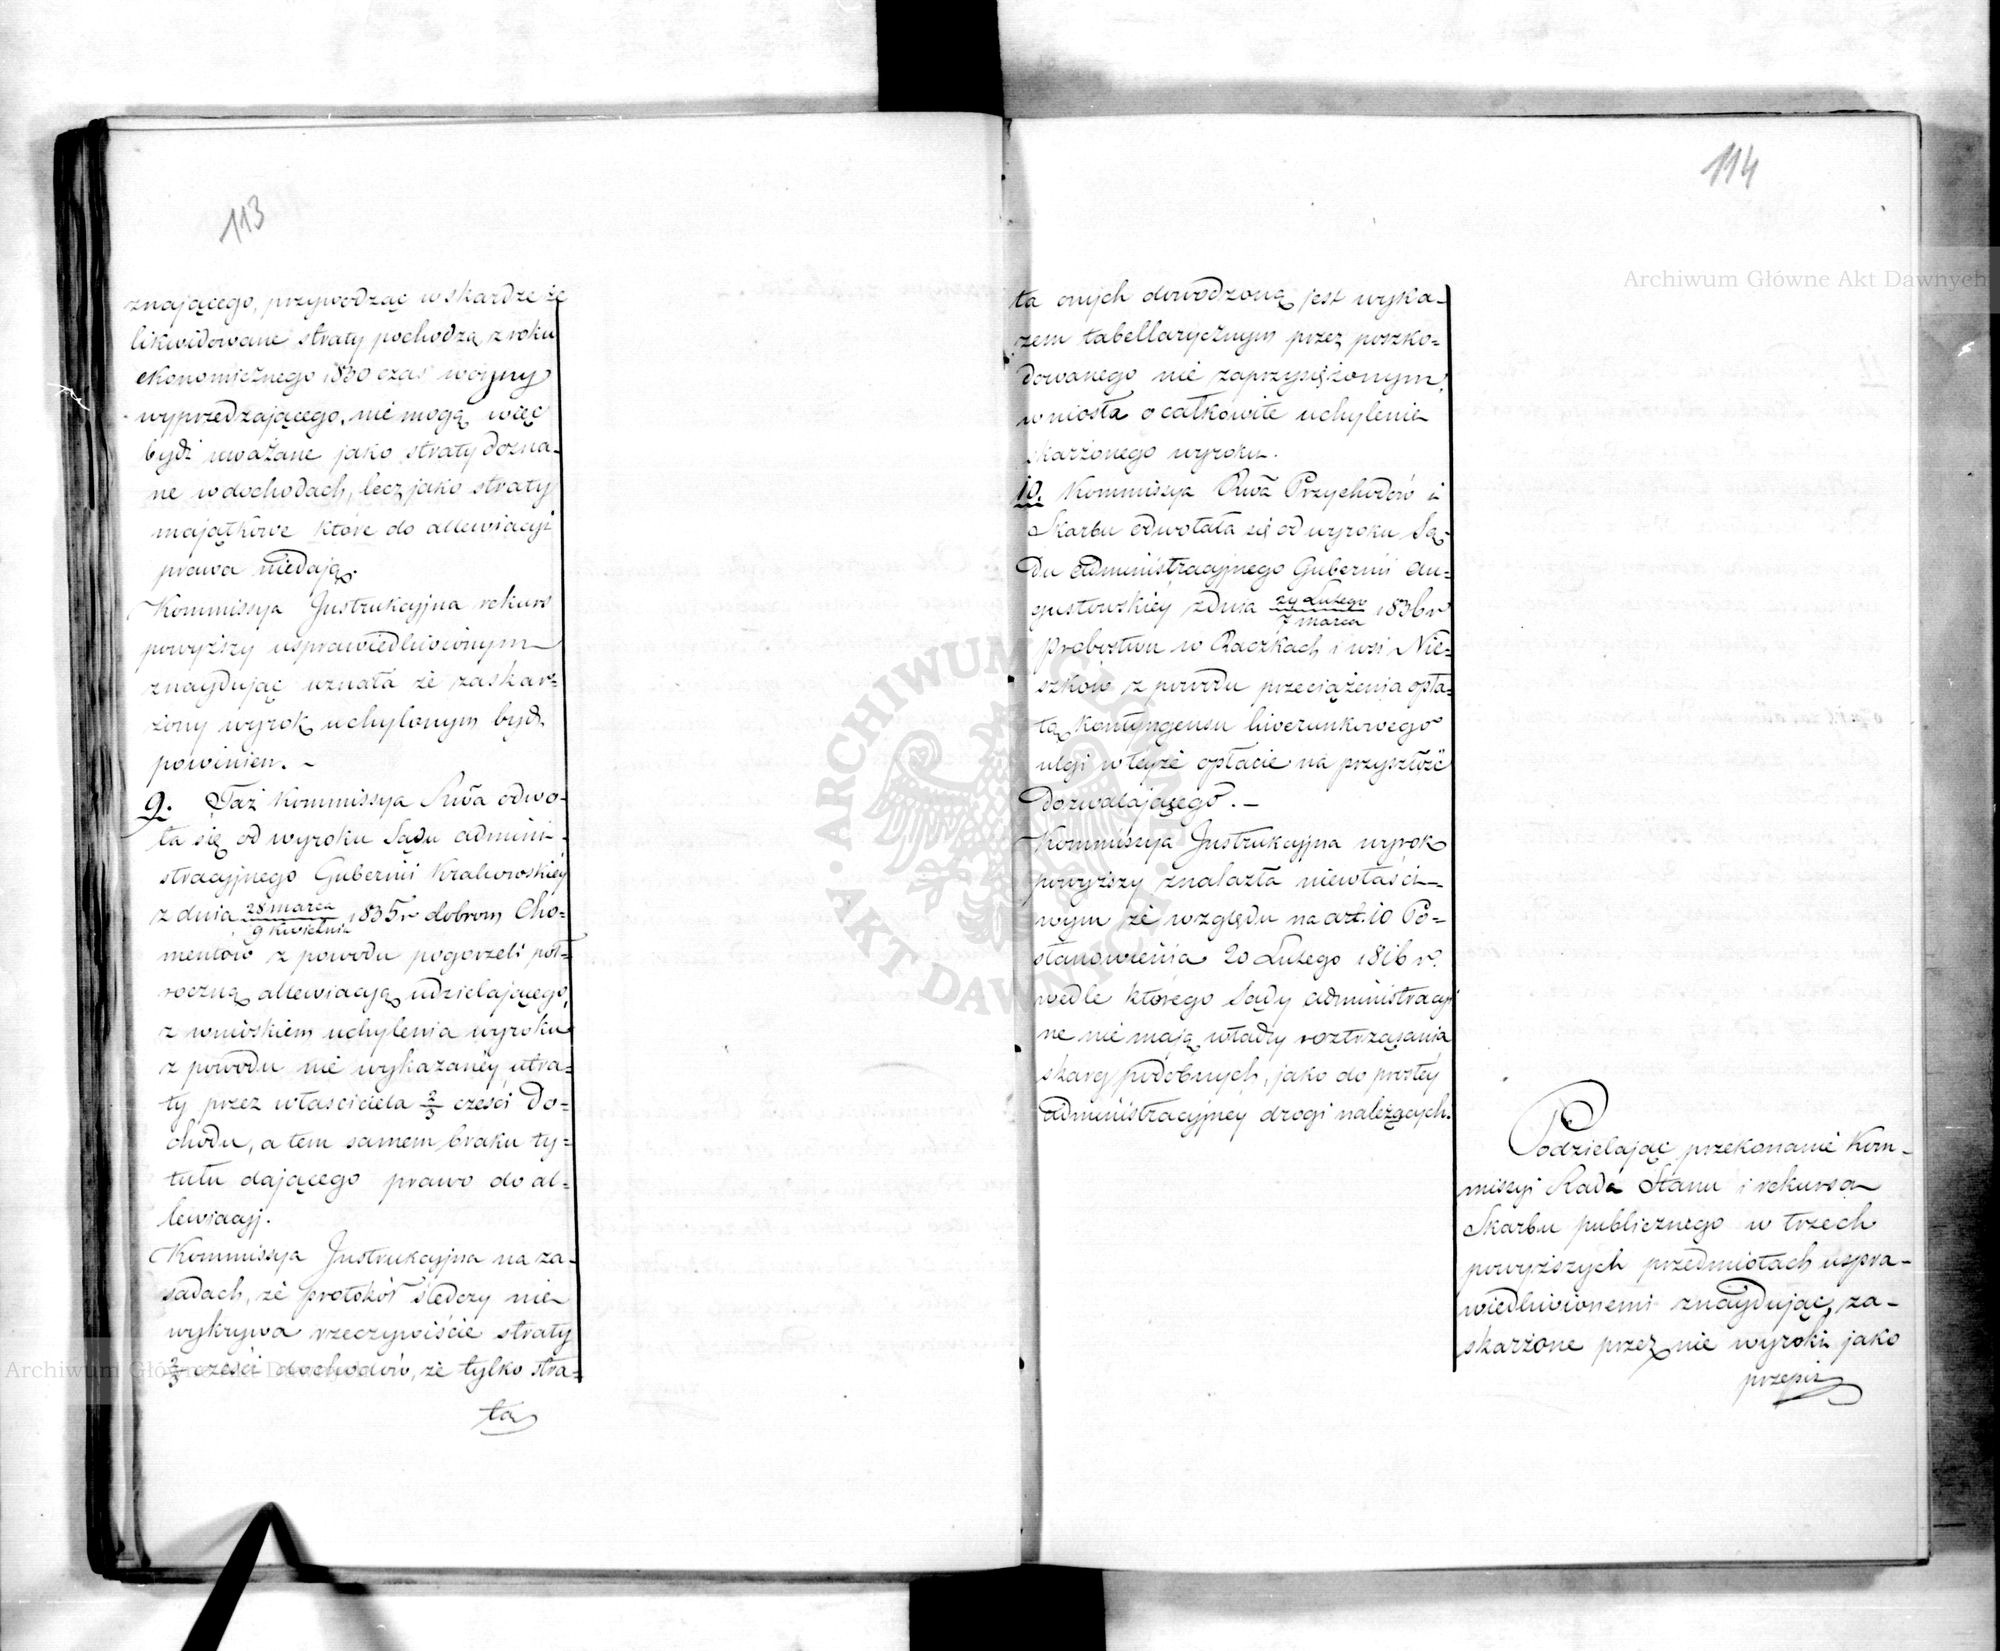 113
znającego, przywodząc w skardze że
likwidowane straty pochodzą z roku
ekonomicznego 1830 czas wojny
wyprzedzającego, nie mogą więc
bydź uważane jako straty dozna-
ne w dochodach, lecz jako straty
majątkowe które do allewiacyi
prawa niedają.
Kommissya Instrukcyjna rekurs
powyższy usprawiedliwionym
znaydując uznała że zaskar-
żony wyrok uchylonym bydź
powinien. —
9. Taż Kommissya Rwa odwo-
ła się od wyroku Sądu admini-
stracyjnego Gubernii Krakowskiéy
z dnia 28 marca / 9 kwietnia 1835 r dobrom Cho-
mentów z powodu pogorzeli pół-
roczną allewiacyą udzielającego,
z wnioskiem uchylenia wyroku
z powodu nie wykazanéy utra-
ty przez właściciela 2/3 części do-
chodu, a tem samem braku ty-
tułu dającego prawo do al-
lewiacyj.
Kommissya Instrukcyjna na za-
sadach, że protokół śledczy nie
wykrywa rzeczywiście straty
2/3 części dochodów, że tylko stra-
ta
114
ta onych dowodzoną jest wyka-
zem tabellarycznym przez poszko-
dowanego nie zaprzysiężonym,
wniosła o całkowite uchylenie
skarżonego wyroku.
10. Kommissya Rwa Przychodów i
Skarbu odwołała się od wyroku Są-
du administracyjnego Gubernii Au-
gustowskiéy z dnia 24 Lutego / 7 marca 1836 r
Probostwu w Raczkach i wsi Nie-
szków z powodu przeciążenia opła-
tą kontyngensu liwerunkowego
ulgi w teyże opłacie na przyszłość
dozwalającego. —
Kommissya Instrukcyjna wyrok
powyższy znalazła niewłaści-
wym ze względu na art. 10 Po-
stanowienia 20 Lutego 1816 r.
wedle którego Sądy administracyj
ne nie mają władzy roztrząsania
skarg podobnych, jako do prostéy
administracyjney drogi należących.
Podzielając przekonanie Kom-
missyi Rada Stanu i rekursa
Skarbu publicznego w trzech
powyższych przedmiotach uspra-
wiedliwionemi znaydując, za-
skarżone przez nie wyroki jako
przepis
Archiwum Główne Akt Dawnych
Archiwum Główne Akt Dawnych
ARCHIWUM GŁÓWNE AKT DAWNYCH